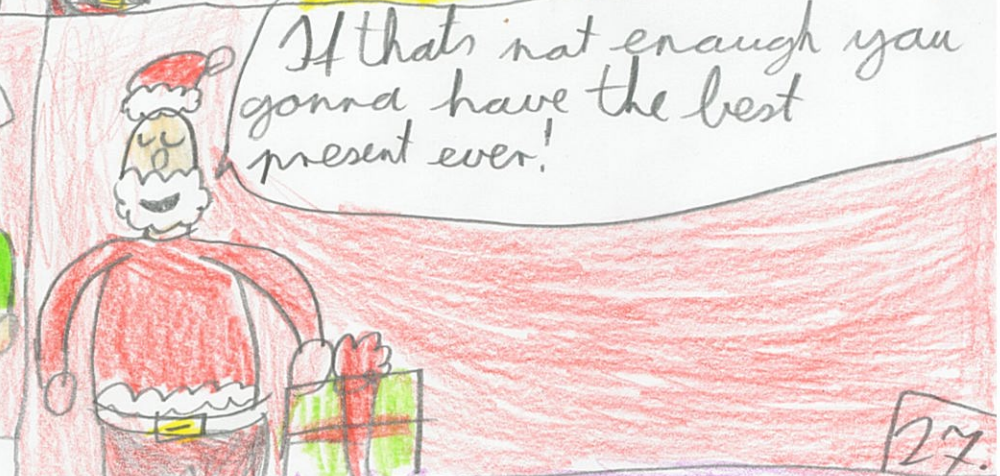 If thats not enaugh yau
gonna have the best
present ever!
27.